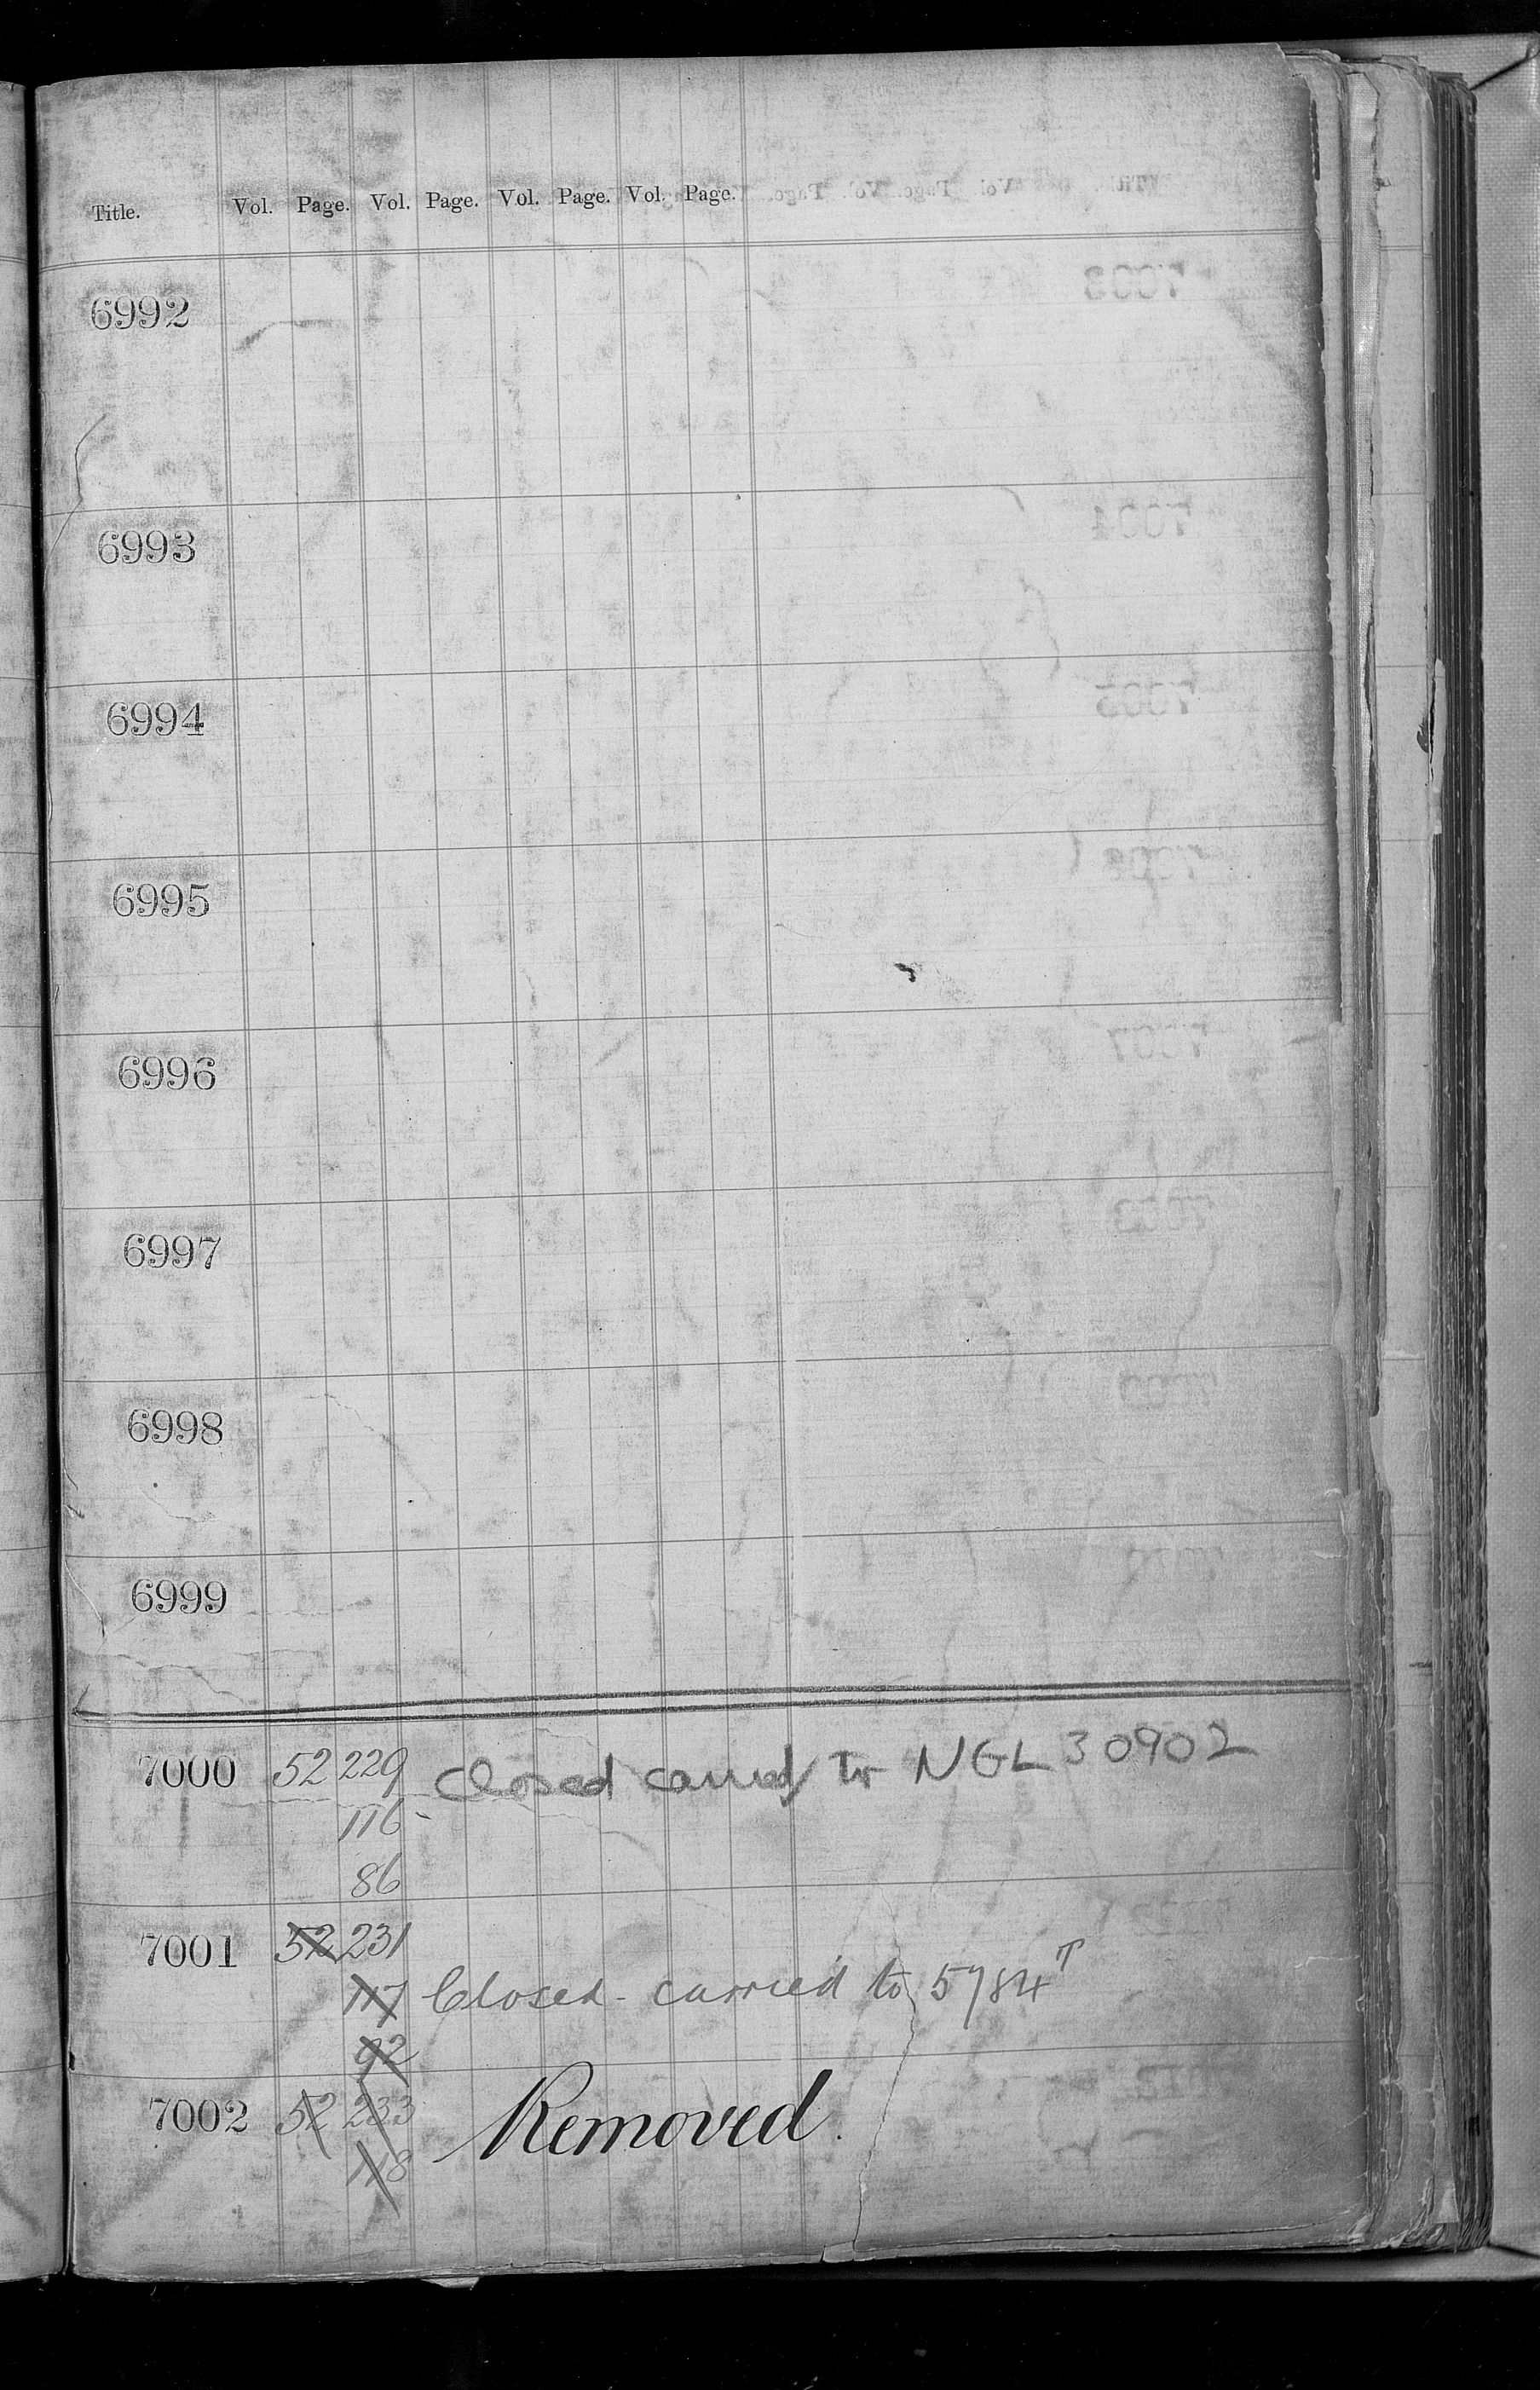 Title. Vol. Page. Vol. Page. Vol. Page. Vol. Page.
6992
6993
6994
6995
6996
6997
6998
6999
7000 52 229 Closed carried to NGL 30902
116
86
7001 52 231
117 Closed - carried to 5784T
92
7002 52 233 Removed.
118